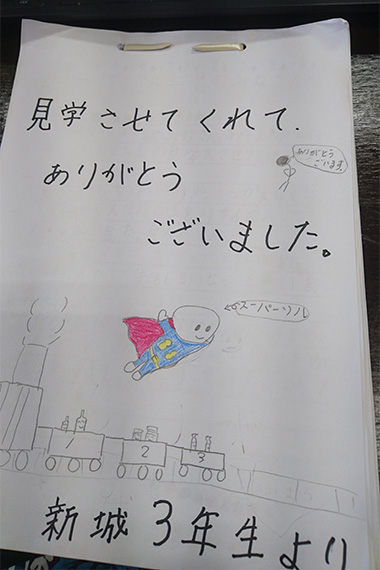 見学させてくれて.
ありがとう
ございます。
ありがとう
ございました。
スーパーソル
1 2 3
新城3年生より